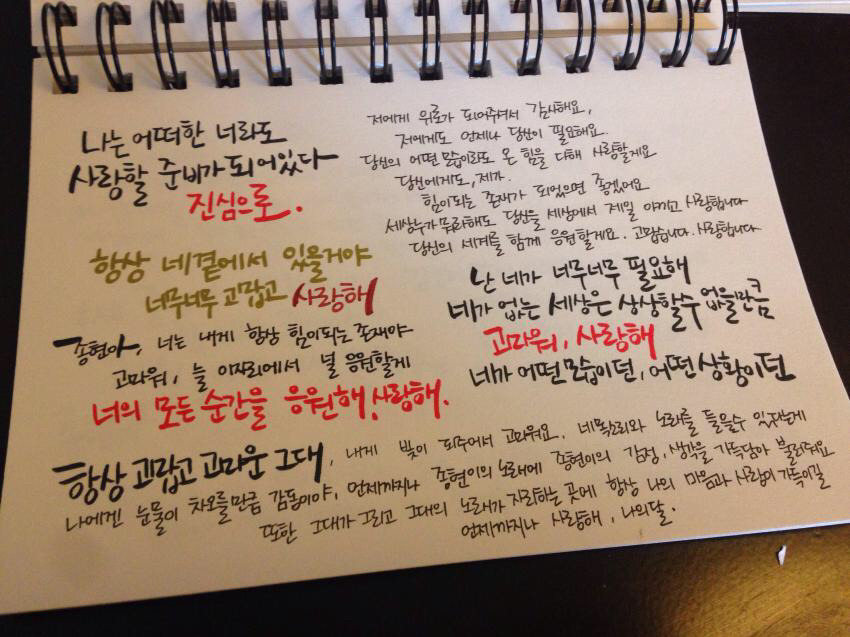 나는 어떠한 너라도
사랑할 준비가 되어있다
진심으로.
저에게 위로가 되어주셔서 감사해요,
저에게도 언제나 당신이 필요해요.
당신의 어떤 모습이라도 온 힘을 다해 사랑할게요
당신에게도, 제가.
힘이되는 존재가 되었으면 좋겠어요
세상누가 뭐라해도 당신을 세상에서 제일 아끼고 사랑합니다
당신의 세계를 함께 응원할게요. 고맙습니다. 사랑합니다
항상 네곁에서 있을거야
너무너무 고맙고 사랑해
난 네가 너무너무 필요해
네가 없는 세상은 상상할수 없을만큼
고마워, 사랑해
네가 어떤모습이던, 어떤상황이던
종현아, 너는 내게 항상 힘이되는 존재야
고마워, 늘 이자리에서 널 응원할게
너의 모든 순간을 응원해, 사랑해.
항상 고맙고 고마운 그대, 내게 빛이 되주어서 고마워요. 네목소리와 노래를 들을수 있다는게
나에겐 눈물이 차오를만큼 감동이야, 언제까지나 종현이의 노래에 종현이의 감정, 생각을 가득담아 불러줘요
또한 그대가 그리고 그대의 노래가 자리하는 곳에 항상 나의 마음과 사랑이 가득이길
언제까지나 사랑해, 나의달.